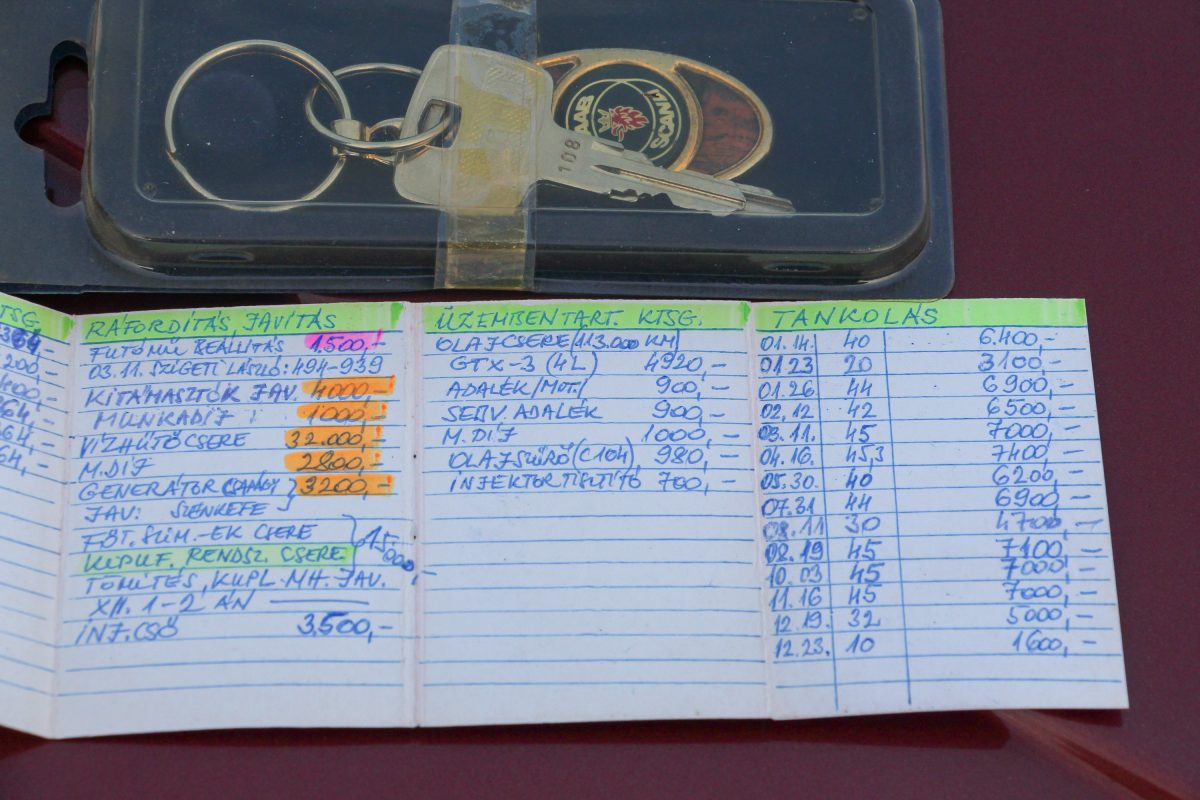 SAAB
SCANIA
108
TSG.
364,-
200,-
400,-
264,-
64,-
64,-
RÁFORDÍTÁS, JAVÍTÁS
FUTÓMŰ BEÁLLÍTÁS 1.500,-
03.11. SZIGETI LÁSZLÓ: 494-939
KITÁMASZTÓK JAV. 4000,-
MUNKADÍJ: 1000,-
VÍZHŰTŐ CSERE 32.000,-
M.DÍJ 2800,-
GENERÁTOR 3200,-
JAV: SZÉNKEFE
CSERE 15.000,-
KIPUF. RENDSZ. CSERE
TÖMÍTÉS, KUPL. MH. JAV.
XII. 1-2 ÁN
INJ.CSŐ 3.500,-
ÜZEMBENTART. KTSG.
OLAJCSERE/113.000 KM/
GTX-3 (4L) 4920,-
ADALÉK/MOT/ 900,-
SERV. ADALÉK 900,-
M.DÍJ 1000,-
OLAJSZŰRŐ (C104) 980,-
INJEKTORTISZTÍTÓ 700,-
TANKOLÁS
01.14. 40 6.400,-
01.23 20 3100,-
01.26 44 6900,-
02.12 42 6500,-
03.11. 45 7000,-
04.16. 45,3 7400,-
05.30. 40 6200,-
07.31 44 6900,-
08.11 30 4700,-
08.19 45 7100,-
10.03 45 7000,-
11.16 45 7000,-
12.19. 32 5000,-
12.23. 10 1600,-